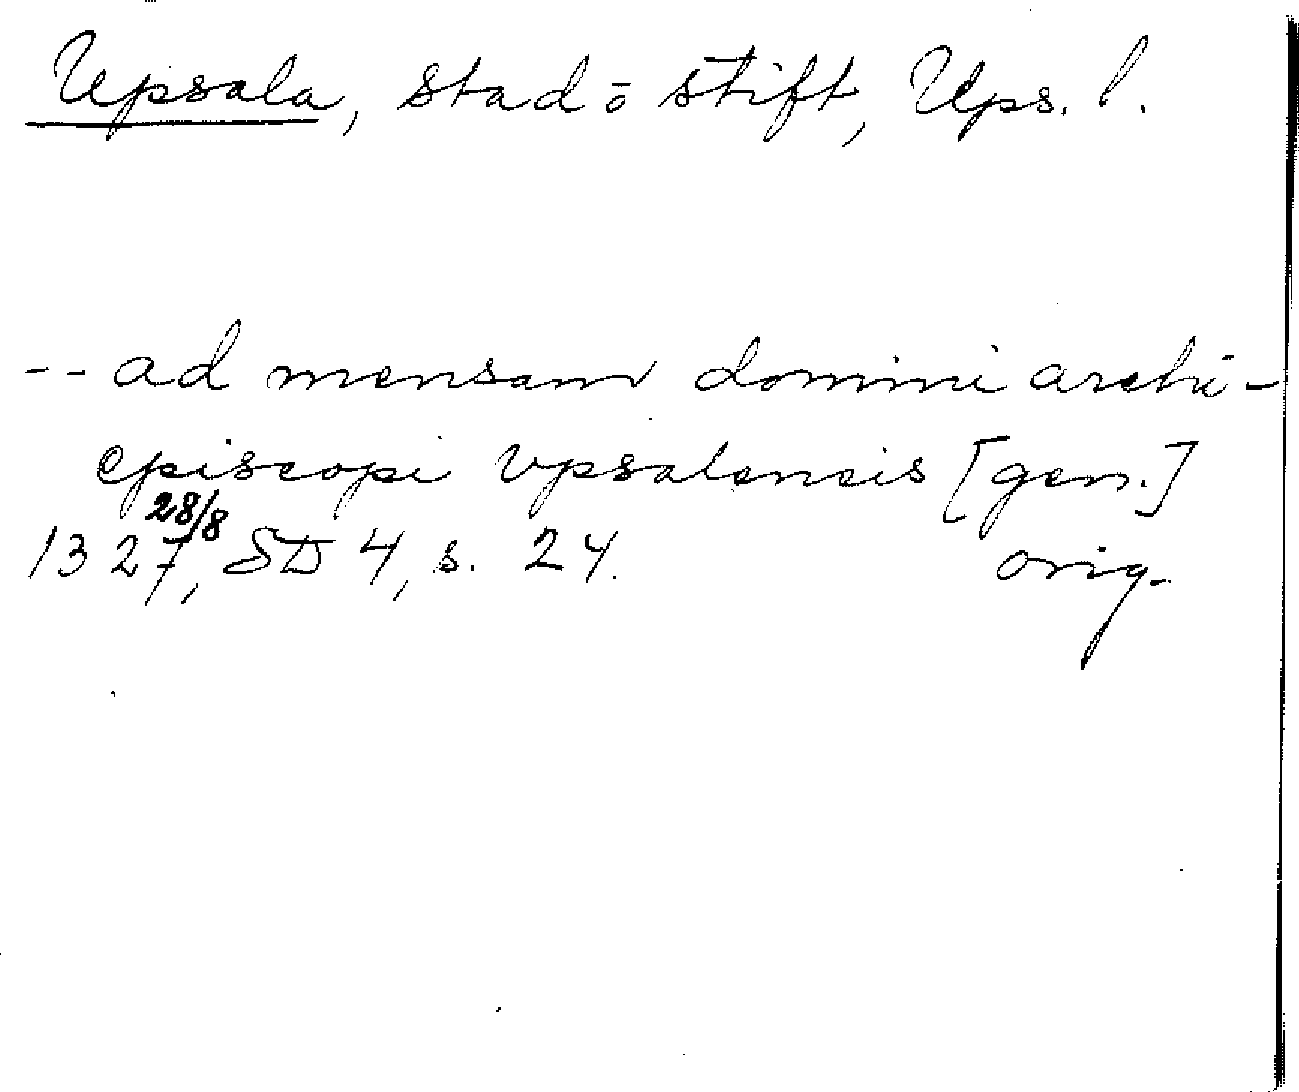 Upsala, stad o stift, Ups. l.
-- ad mensam domini archi-
episcopi vpsalensis [gen.]
28/8
1327, SD 4, s. 24. orig.